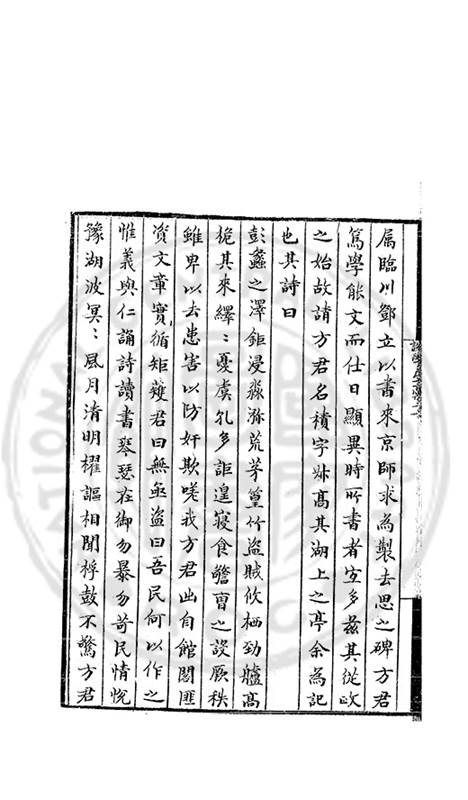 屬臨川鄧立以書來京師求為製去思之碑方君
篤學能文而仕日顯異時所書者宜多茲其從政
之始故請方君名積字叔高其湖上之亭余為記
也其詩曰
彭蠡之澤鉅浸淼瀰荒茅篁竹盜賊攸栖勁艫高
桅其來繹〻憂虞孔多詎遑寢食簷曹之設厥秩
雖卑以去患害以防奸欺嗟我方君出自館閣匪
資文章實循矩矱君曰無亟盜曰吾民何以作之
惟義與仁誦詩讀書琴瑟在御勿暴勿苛民情悅
豫湖波冥〻風月清明櫂謳相聞桴鼓不驚方君